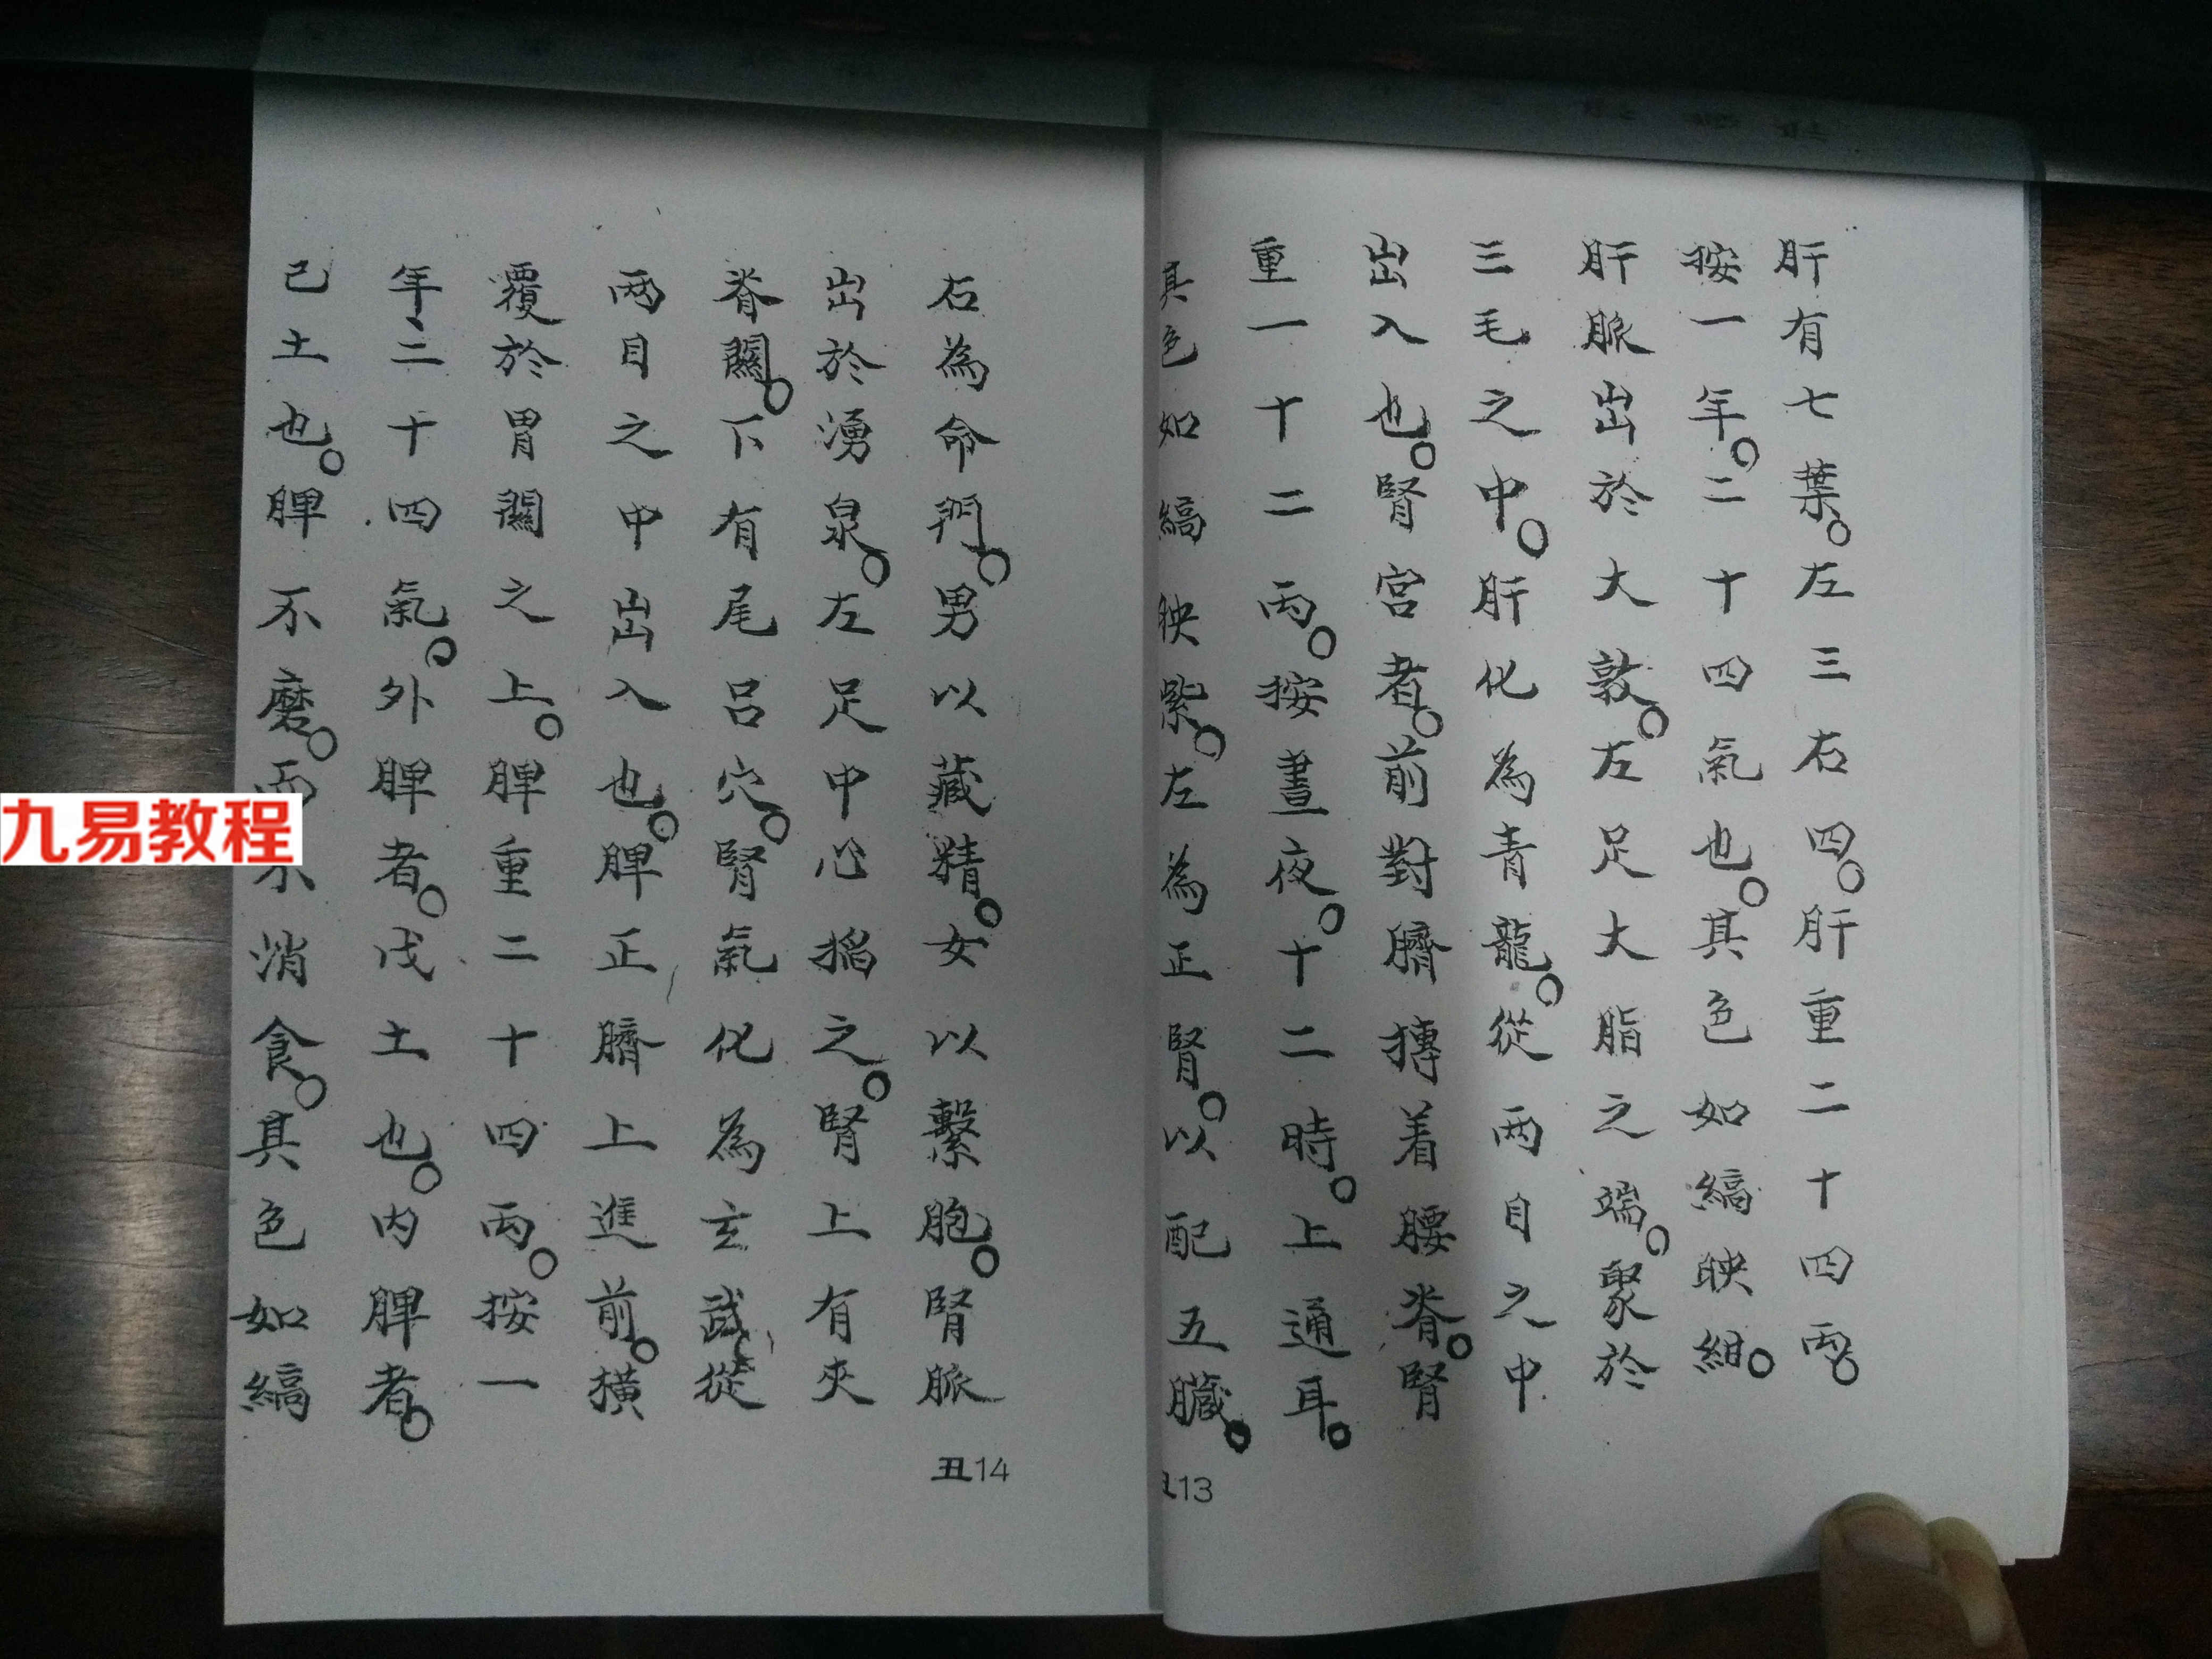 肝有七葉。左三右四。肝重二十四兩。
按一年。二十四氣也。其色如縞映紺。
肝脈出於大敦。左足大脂之端。聚於
三毛之中。肝化為青龍。從兩目之中
出入也。腎宮者。前對臍摶着腰脊。腎
重一十二兩。按晝夜。十二時。上通耳。
其色如縞映紫。左為正腎。以配五臟。
丑13
右為命門。男以藏精。女以繫胞。腎脈
出於湧泉。左足中心搯之。腎上有夾
脊關。下有尾呂穴。腎氣化為玄武。從
兩目之中出入也。脾正臍上進前。橫
覆於胃關之上。脾重二十四兩。按一
年二十四氣。外脾者。戊土也。內脾者。
己土也。脾不磨。而不消食。其色如縞
丑14
九易教程